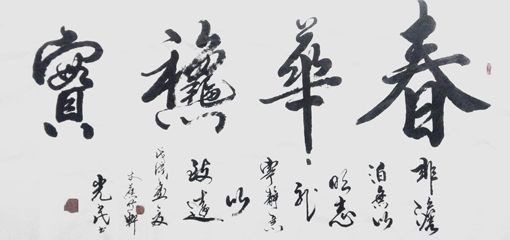 春華龝實
非澹
泊無以
明志
非
寧靜無
以
致遠
戊戌孟夏
光民書